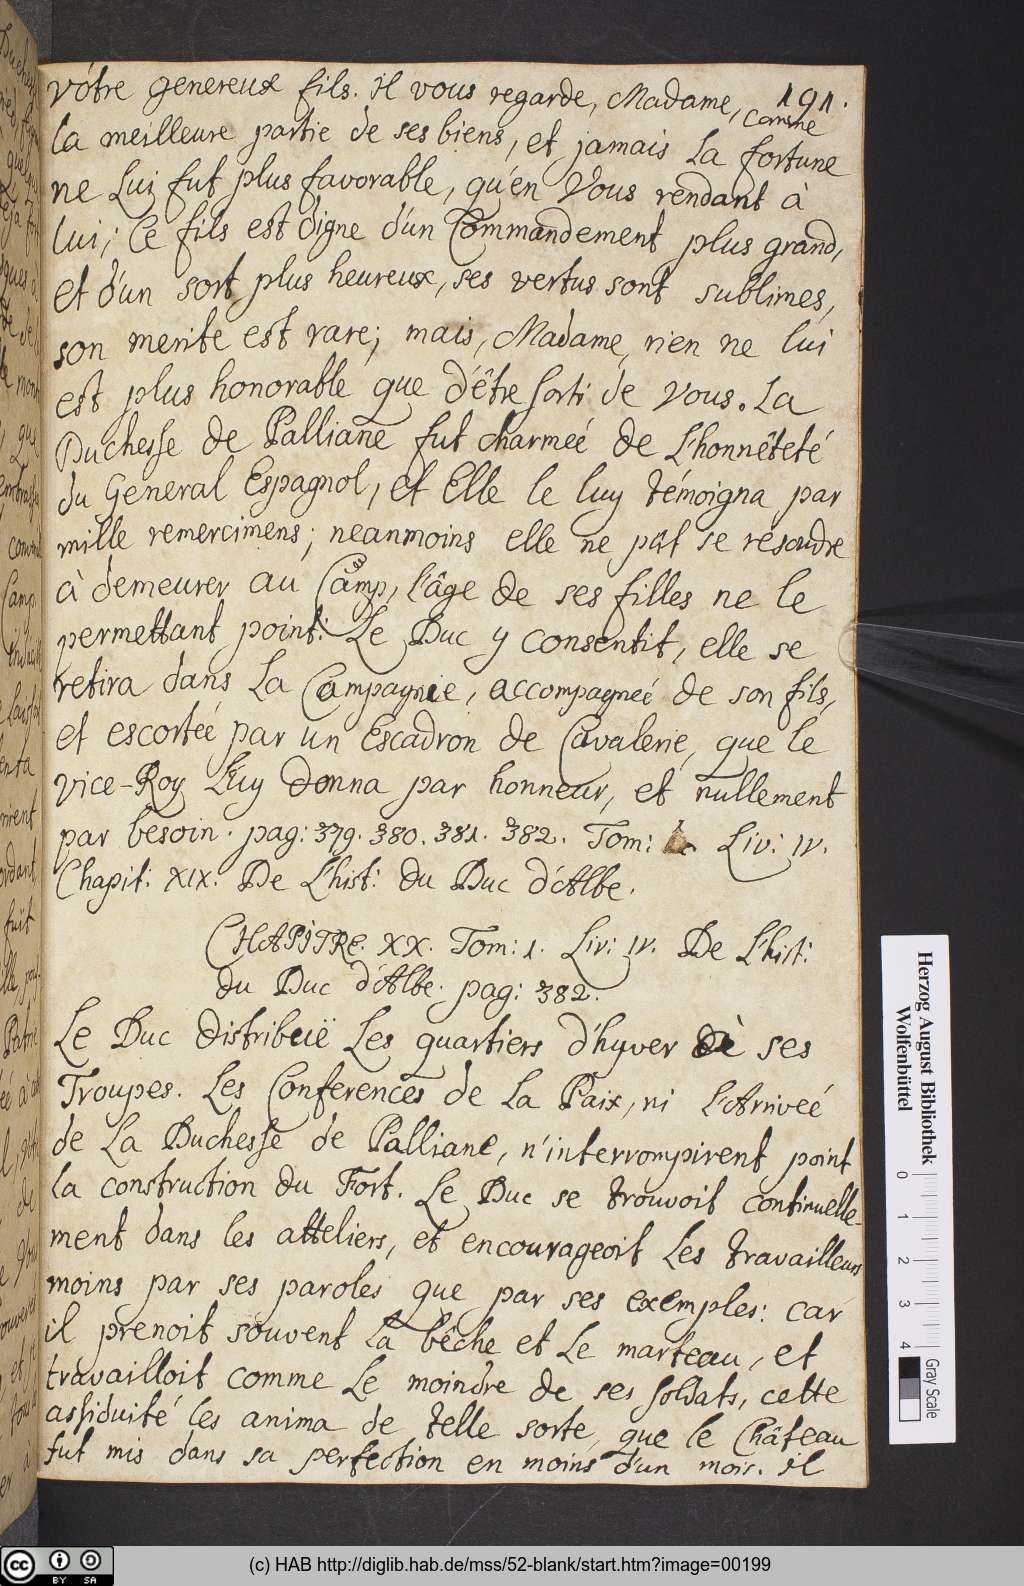 191.
vôtre genereux fils. il vous regarde, Madame, comme
la meilleure partie de ses biens, et jamais la fortune
ne Lui fut plus favorable, qu'en Vous rendant à
lui; Ce fils est digne d'un Commandement plus grand,
et d'un sort plus heureux, ses vertus sont sublimes,
son merite est rare; mais, Madame, rien ne lui
est plus honorable que d'être sorti de Vous. La
Duchesse de Palliane fut charmeé de L'honnêteté
du General Espagnol, et Elle le luy témoigna par
mille remercimens; neanmoins elle ne pût se resoudre
à demeurer au Camp, l'âge de ses filles ne le
permettant point: Le Duc y consentit, elle se
retira dans La Campagnie, accompagneé de son fils,
et escorteé par un Escadron de Cavalerie, que le
vice-Roy Luy donna par honneur, et nullement
par besoin. pag: 379. 380. 381. 382. Tom: Liv: IV.
Chapit: XIX. De L'hist: du Duc d'Albe.
CHAPITRE. XX. Tom: 1. Liv: IV. De L'hist:
du Duc d'Albe. pag: 382.
Le Duc distribuë Les quartiers d'hyver à ses
Troupes. Les Conferences de La Paix, ni L'Arriveé
de La Duchesse de Palliane, n'interrompirent point
la construction du Fort. Le Duc se trouvoit continuelle-
ment dans les atteliers, et encourageoit Les travailleurs
moins par ses paroles que par ses exemples: car
il prenoit souvent la bêche et Le marteau, et
travailloit comme Le moindre de ses soldats, cette
assiduité les anima de telle sorte, que le Château
fut mis dans sa perfection en moins d'un mois. il
Herzog August Bibliothek
Wolfenbüttel
0 1 2 3 4
Gray Scale
cc BY SA
(c) HAB http://diglib.hab.de/mss/52-blank/start.htm?image=00199